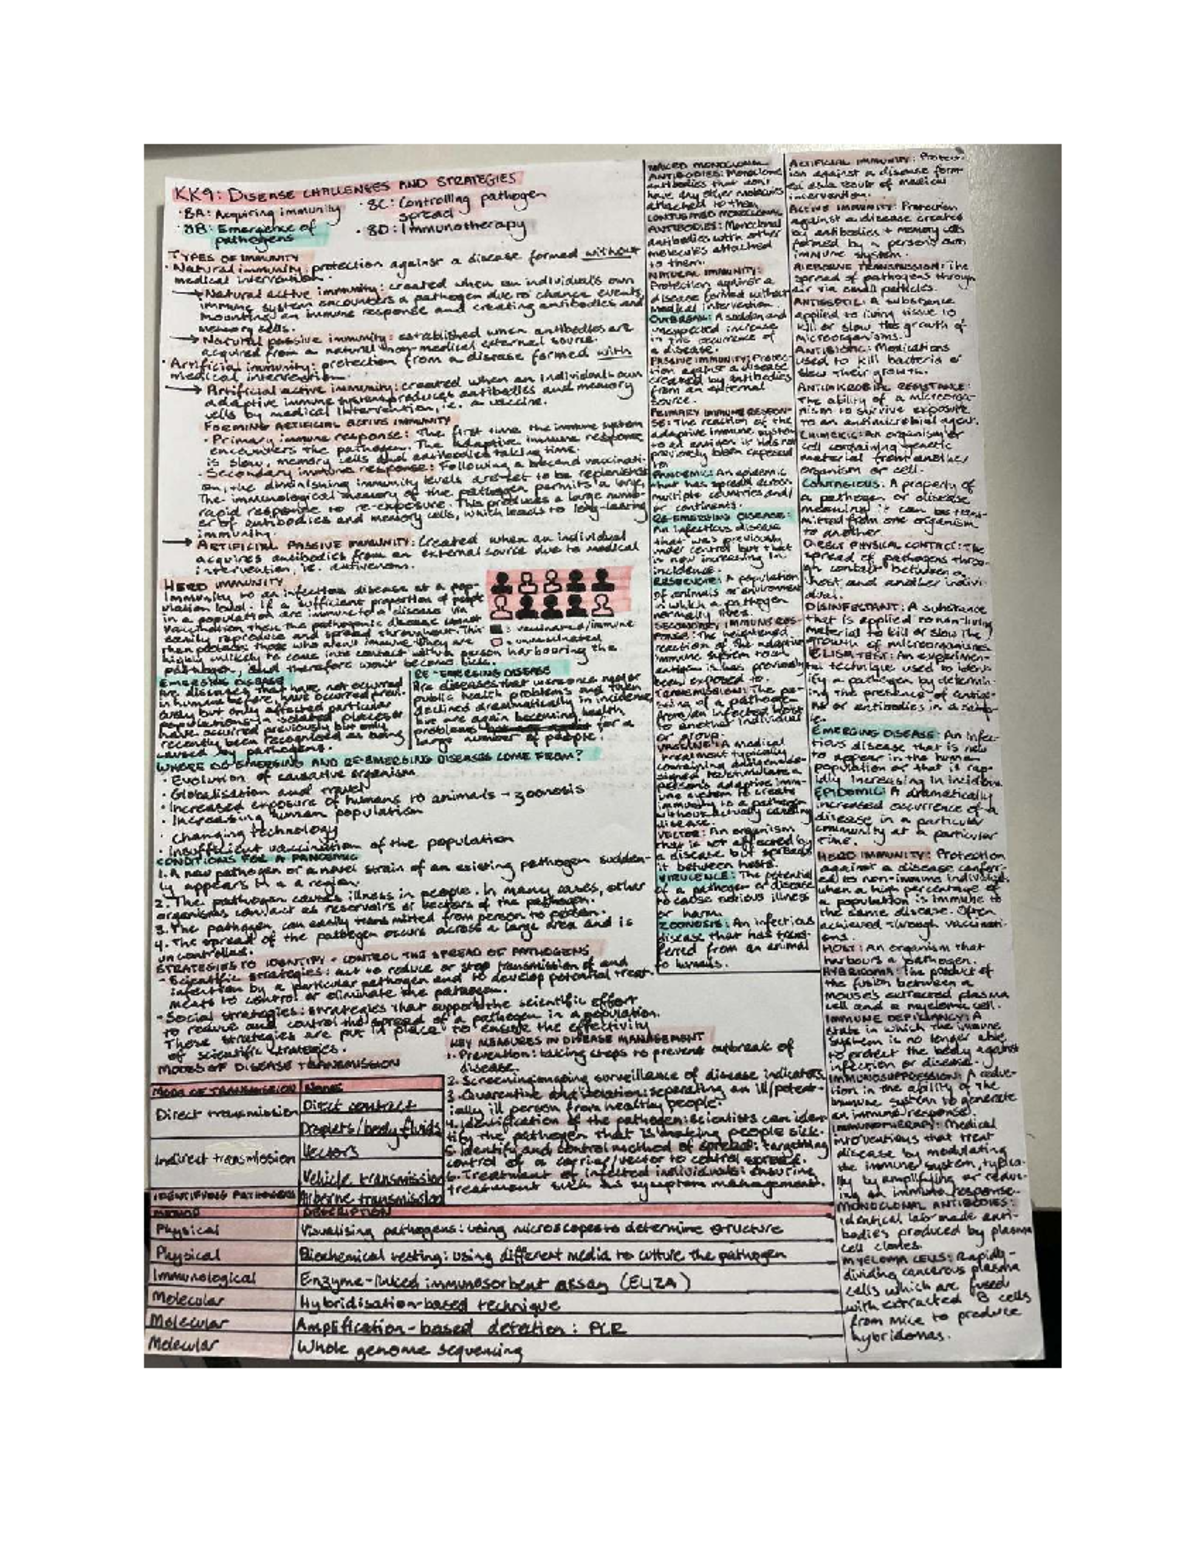 KK9: DISEASE CHALLENGES AND STRATEGIES
· 8A: Acquiring immunity
· 8B: Emergence of
pathogens
· 8C: Controlling pathogen
spread
· 8D: Immunotherapy
TYPES OF IMMUNITY
· Natural immunity: protection against a disease formed without
medical intervention.
→ Natural active immunity: created when an individual's own
immune system encounters a pathogen due to chance events,
mounting an immune response and creating antibodies and
memory cells.
→ Natural passive immunity: established when antibodies are
acquired from a natural non-medical external source.
· Artificial immunity: protection from a disease formed with
medical intervention.
→ Artificial active immunity: created when an individual's own
adaptive immune system produces antibodies and memory
cells by medical intervention, i.e. a vaccine.
FORMING ARTIFICIAL ACTIVE IMMUNITY
· Primary immune response: The first time the immune system
encounters the pathogen. The adaptive immune response
is slow, memory cells and antibodies taking time.
· Secondary immune response: Following a second vaccinati-
on, the diminishing immunity levels are set to be replenished
The immunological memory of the pathogen permits a large,
rapid response to re-exposure. This produces a large numb-
er of antibodies and memory cells, which leads to long-lasting
immunity.
→ ARTIFICIAL PASSIVE IMMUNITY: Created when an individual
acquires antibodies from an external source due to medical
intervention, i.e. antivenom.
HERD IMMUNITY
Immunity to an infectious disease at a pop-
ulation level. If a sufficient proportion of people
in a population are immune to a disease via
vaccination, then the pathogenic disease cannot
easily reproduce and spread throughout. This
then protects those who aren't immune. They are
highly unlikely to come into contact with a person harbouring the
pathogen, and therefore won't become sick.
: vaccinated/immune
: unvaccinated
EMERGING DISEASE
Are diseases that have not occurred
in humans before, have occurred previ-
ously but only affected particular
populations in isolated places or
have occurred previously but only
recently been recognised as being
caused by pathogens.
RE-EMERGING DISEASE
Are diseases that were once major
public health problems and then
declined dramatically in incidence
but are again becoming health
problems for a
large number of people.
WHERE DO EMERGING AND RE-EMERGING DISEASES COME FROM?
· Evolution of causative organism
· Globalisation and travel
· Increased exposure of humans to animals - zoonosis
· Increasing human population
· Changing technology
· Insufficient vaccination of the population
CONDITIONS FOR A PANDEMIC
1. A new pathogen or a novel strain of an existing pathogen sudden-
ly appears in a region.
2. The pathogen causes illness in people. In many cases, other
organisms can act as reservoirs or vectors of the pathogen.
3. The pathogen can easily transmitted from person to person.
4. The spread of the pathogen occurs across a large area and is
uncontrolled.
STRATEGIES TO IDENTIFY + CONTROL THE SPREAD OF PATHOGENS
- Scientific strategies: act to reduce or stop transmission of and
infection by a particular pathogen and to develop potential treat-
ments to control or eliminate the pathogen.
- Social strategies: strategies that support the scientific effort
to reduce and control the spread of a pathogen in a population.
These strategies are put in place to ensure the effectivity
of scientific strategies.
MODES OF DISEASE TRANSMISSION
MODE OF TRANSMISSION NAME
Direct transmission Direct contact
Droplets/body fluids
Indirect transmission Vectors
Vehicle transmission
Airborne transmission
KEY MEASURES IN DISEASE MANAGEMENT
1. Prevention: taking steps to prevent outbreak of
disease.
2. Screening: ongoing surveillance of disease indicators.
3. Quarantine and isolation: separating an ill/potent-
ially ill person from healthy people.
4. Identification of the pathogen: scientists can iden-
tify the pathogen that is making people sick.
5. Identify and control method of spread: targetting
control of a carrier/vector to control spread.
6. Treatment of infected individuals: ensuring
treatment such as symptom management.
IDENTIFYING PATHOGENS
METHOD DESCRIPTION
Physical Visualising pathogens: using microscopes to determine structure
Physical Biochemical testing: using different media to culture the pathogen
Immunological Enzyme-linked immunosorbent assay (ELIZA)
Molecular Hybridisation-based technique
Molecular Amplification-based detection: PCR
Molecular Whole genome sequencing
NAKED MONOCLONAL
ANTIBODIES: Monoclonal
antibodies that don't
have any other molecules
attached to them
CONJUGATED MONOCLONAL
ANTIBODIES: Monoclonal
antibodies with other
molecules attached
to them.
NATURAL IMMUNITY:
Protection against a
disease formed without
medical intervention.
OUTBREAK: A sudden and
unexpected increase
in the occurrence of
a disease.
PASSIVE IMMUNITY: Protec-
tion against a disease
created by antibodies
from an external
source.
PRIMARY IMMUNE RESPON-
SE: The reaction of the
adaptive immune system
to an antigen it has not
previously been exposed
to
PANDEMIC: An epidemic
that has spread across
multiple countries and/
or continents.
RE-EMERGING DISEASE:
An infectious disease
that was previously
under control but that
is now increasing in
incidence.
RESERVOIR: A population
of animals or environment
in which a pathogen
normally lives.
SECONDARY IMMUNE RES-
PONSE: The heightened
reaction of the adaptive
immune system to an
antigen it has previously
been exposed to.
TRANSMISSION: The pa-
ssing of a pathogen
from an infected host
to another individual
or group.
VACCINE: A medical
treatment typically
containing antigens de-
signed to stimulate a
person's adaptive imm-
une system to create
immunity to a pathogen
without actually causing
disease.
VECTOR: An organism
that is not affected by
a disease but spreads
it between hosts.
VIRULENCE: The potential
of a pathogen or disease
to cause serious illness
or harm.
ZOONOSIS: An infectious
disease that has trans-
ferred from an animal
to humans.
ARTIFICIAL IMMUNITY: Protect-
ion against a disease form-
ed as a result of medical
intervention.
ACTIVE IMMUNITY: Protection
against a disease created
by antibodies + memory cells
formed by a person's own
immune system.
AIRBORNE TRANSMISSION: The
spread of pathogens through
air via small particles.
ANTISEPTIC: A substance
applied to living tissue to
kill or slow the growth of
microorganisms.
ANTIBIOTIC: Medications
used to kill bacteria or
slow their growth.
ANTIMICROBIAL RESISTANCE:
The ability of a microorga-
nism to survive exposure
to an antimicrobial agent.
CHIMERIC: An organism or
cell containing genetic
material from another
organism or cell.
CONTAGIOUS: A property of
a pathogen or disease
meaning it can be trans-
mitted from one organism
to another
DIRECT PHYSICAL CONTACT: The
spread of pathogens throu-
gh contact between
host and another indivi-
dual.
DISINFECTANT: A substance
that is applied to non-living
material to kill or slow the
growth of microorganisms
ELISA TEST: An experimen-
tal technique used to iden-
tify a pathogen by determin-
ing the presence of antige-
ns or antibodies in a samp-
le.
EMERGING DISEASE: An infec-
tious disease that is new
to appear in the human
population or that is rap-
idly increasing in incidence
EPIDEMIC: A dramatically
increased occurrence of a
disease in a particular
community at a particular
time.
HERD IMMUNITY: Protection
against a disease confer-
red to non-immune individuals
when a high percentage of
a population is immune to
the same disease. Often
achieved through vaccinati-
ons.
HOST: An organism that
harbours a pathogen.
HYBRIDOMA: The product of
the fusion between a
mouse's extracted plasma
cell and a myeloma cell.
IMMUNE DEFICIENCY: A
state in which the immune
system is no longer able
to protect the body against
infection or disease.
IMMUNOSUPPRESSION: A reduc-
tion in the ability of the
immune system to generate
an immune response.
IMMUNOTHERAPY: Medical
interventions that treat
disease by modulating
the immune system, typica-
lly by amplifying or reduc-
ing an immune response.
MONOCLONAL ANTIBODIES:
identical lab-made anti-
bodies produced by plasma
cell clones.
MYELOMA CELLS: Rapidly-
dividing cancerous plasma
cells which are fused
with extracted B cells
from mice to produce
hybridomas.